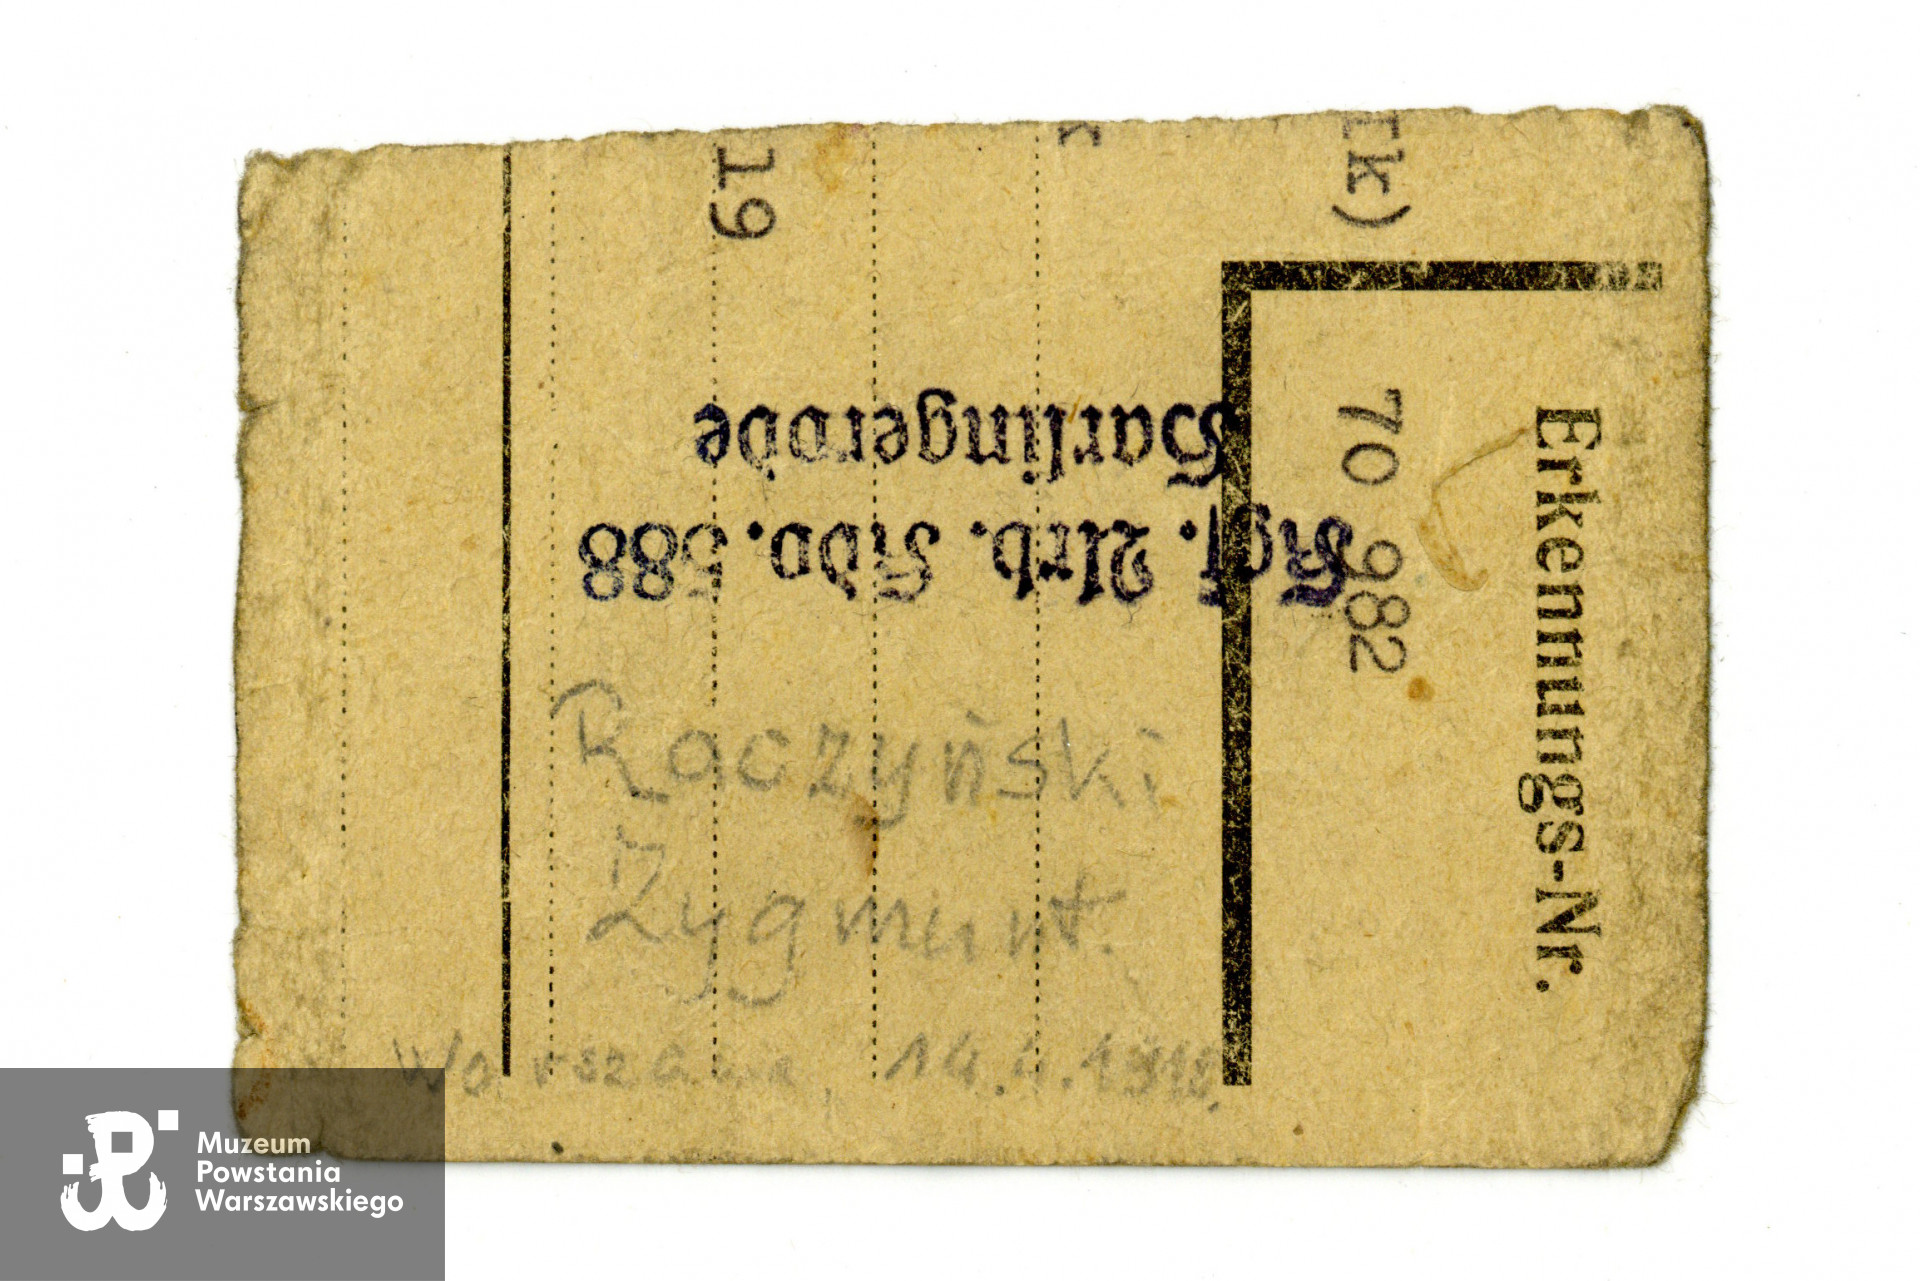 19
k)
Erkennungs-Nr.
70 982
Kgf. Arb. Kdo. 588
Harlingerode
Raczyński
Zygmunt.
Warszawa, 14.4.
Muzeum
Powstania
Warszawskiego